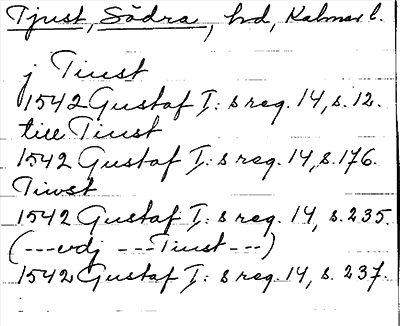 Tjust, Södra, hd, Kalmar l.
j Tiust
1542 Gustaf I: s reg. 14, s. 12.
till Tiust
1542 Gustaf I: s reg. 14, s. 176.
Tiwst
1542 Gustaf I: s reg. 14, s. 235.
(---vdj ---Tiust---)
1542 Gustaf I: s reg. 14, s. 237.